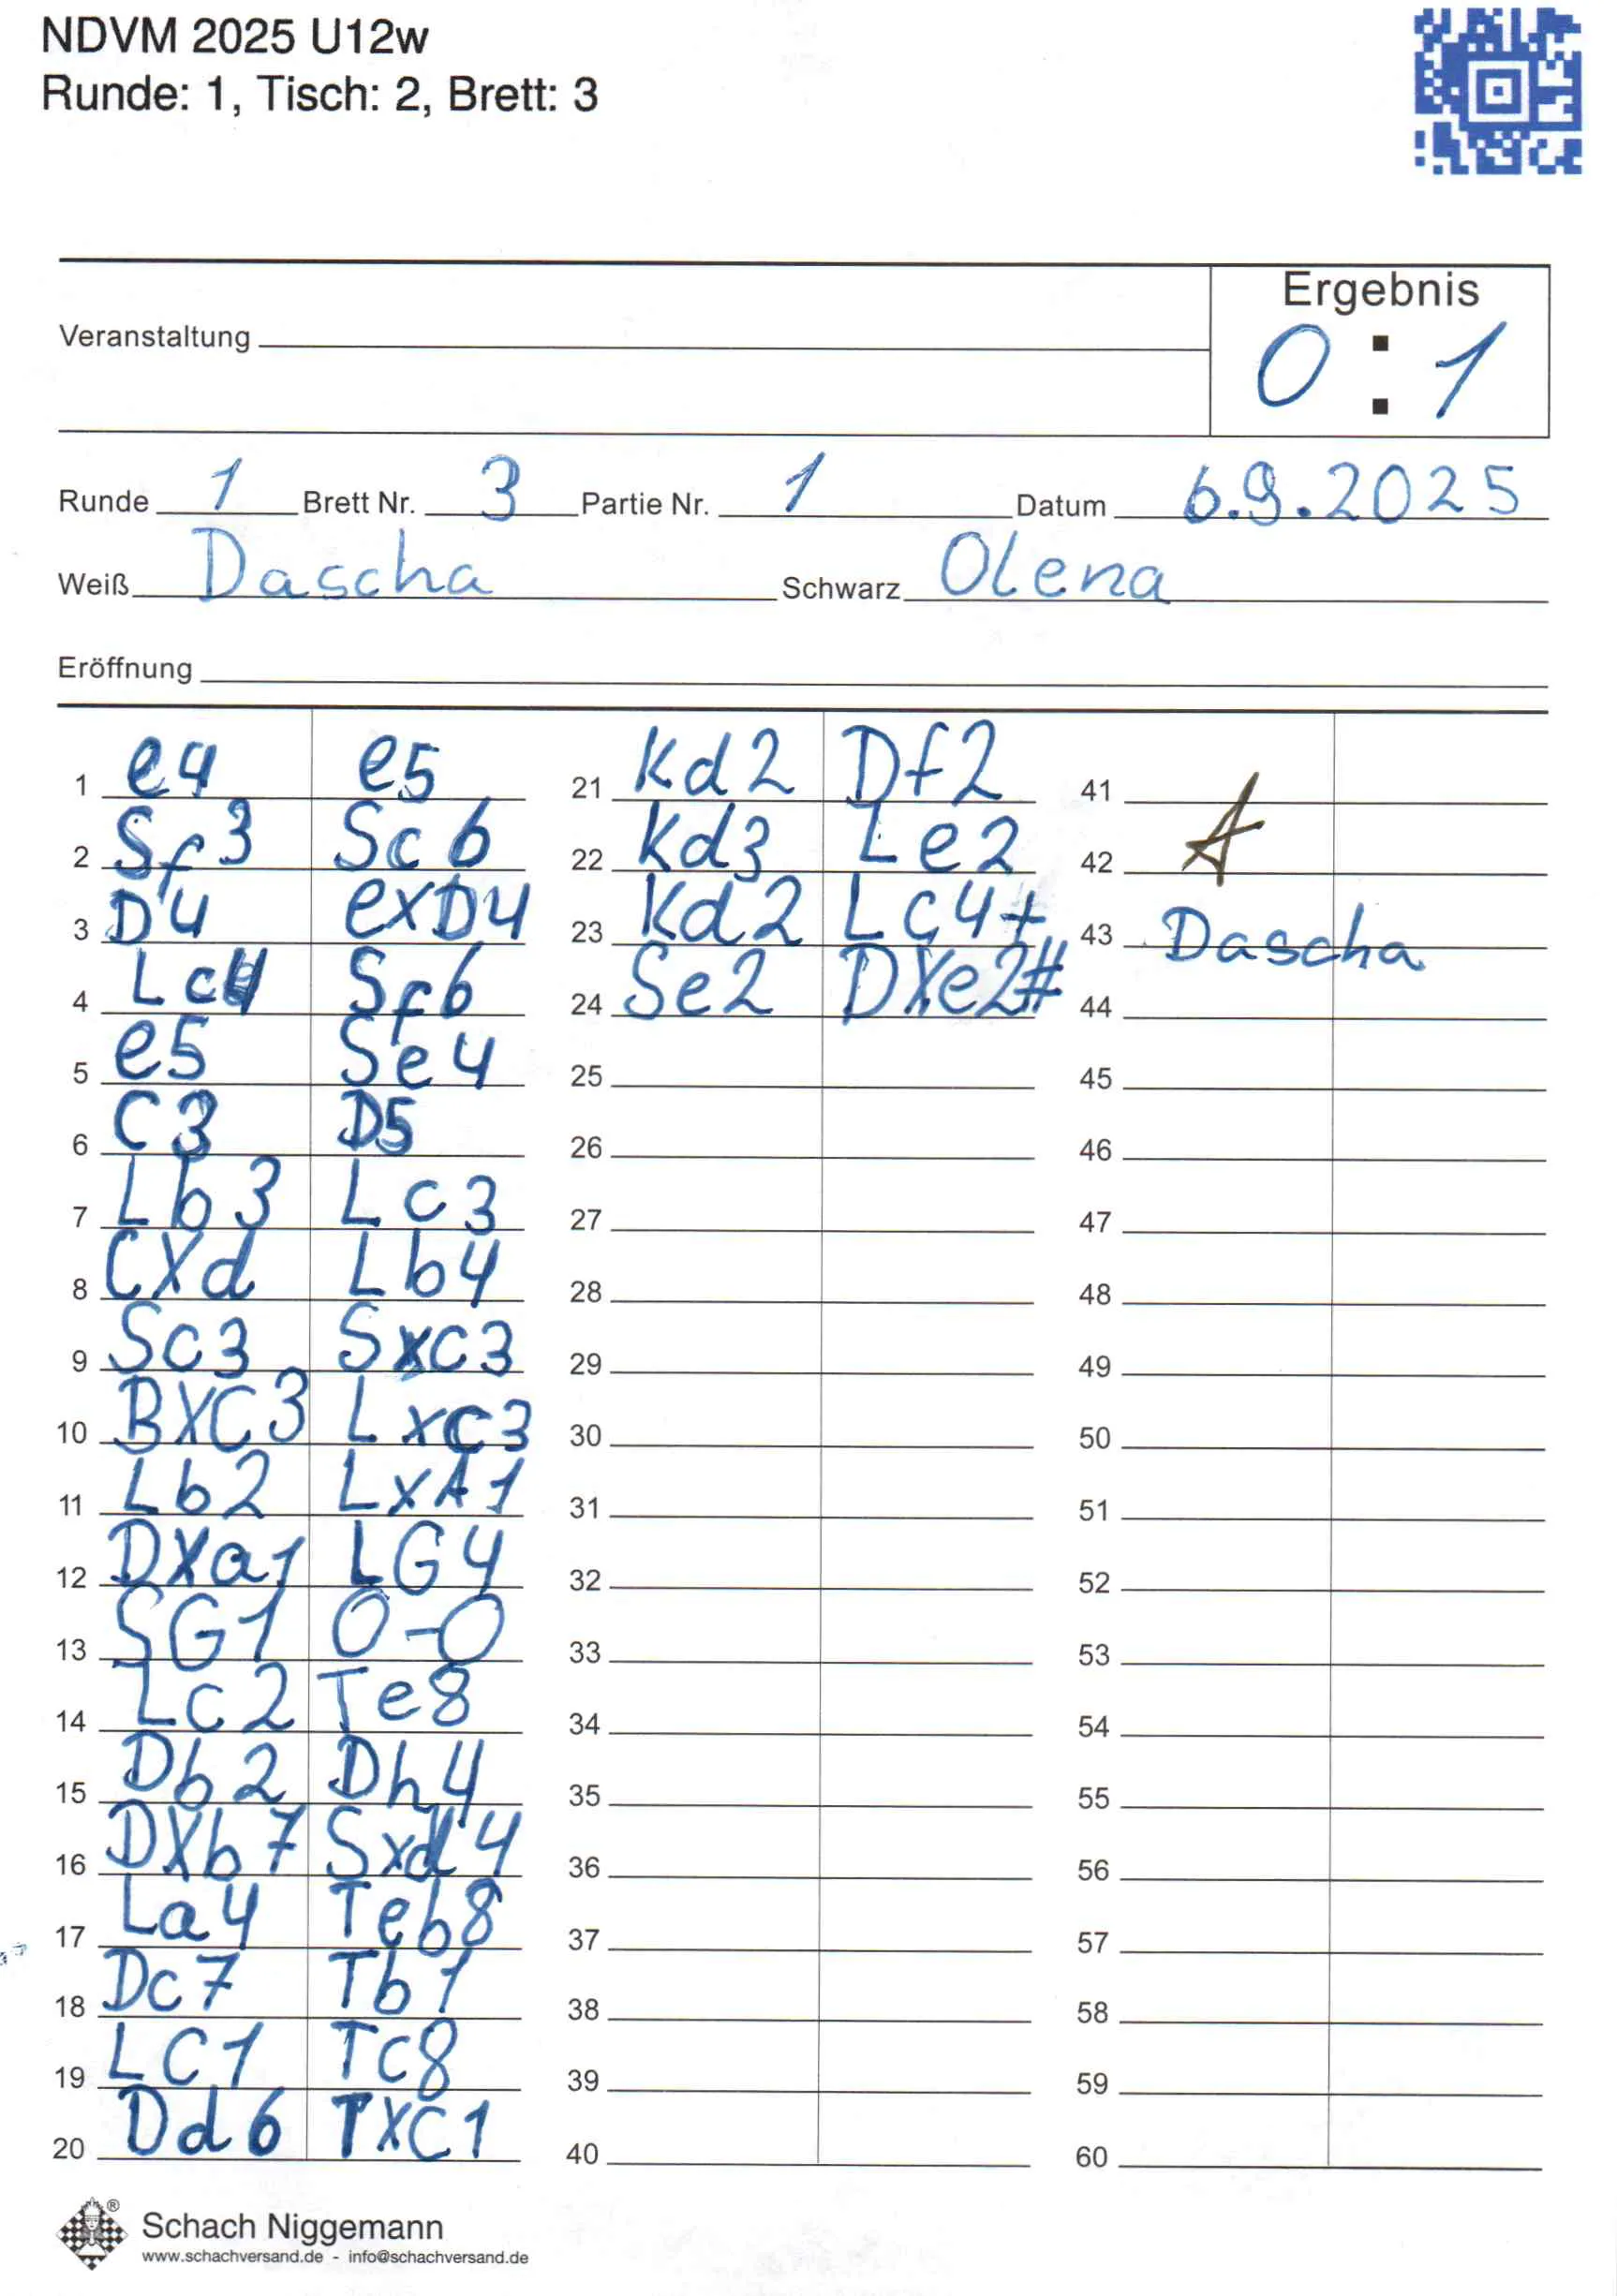 NDVM 2025 U12w
Runde: 1, Tisch: 2, Brett: 3
Ergebnis
Veranstaltung
0 : 1
Runde 1 Brett Nr. 3 Partie Nr. 1 Datum 6.9.2025
Weiß Dascha Schwarz Olena
Eröffnung
1 e4 e5
2 Sf3 Sc6
3 D4 exD4
4 Lc4 Sf6
5 e5 Se4
6 C3 D5
7 Lb3 Lc3
8 CXd Lb4
9 Sc3 SxC3
10 BXC3 Lxc3
11 Lb2 LxA1
12 DXa1 LG4
13 SG1 0-0
14 Lc2 Te8
15 Db2 Dh4
16 DXb7 Sxd4
17 La4 Teb8
18 Dc7 Tb1
19 LC1 Tc8
20 Dd6 TXC1
21 Kd2 Df2
22 Kd3 Le2
23 Kd2 Lc4+
24 Se2 DXe2#
25
26
27
28
29
30
31
32
33
34
35
36
37
38
39
40
41
42
43 Dascha
44
45
46
47
48
49
50
51
52
53
54
55
56
57
58
59
60
®
Schach Niggemann
www.schachversand.de - info@schachversand.de